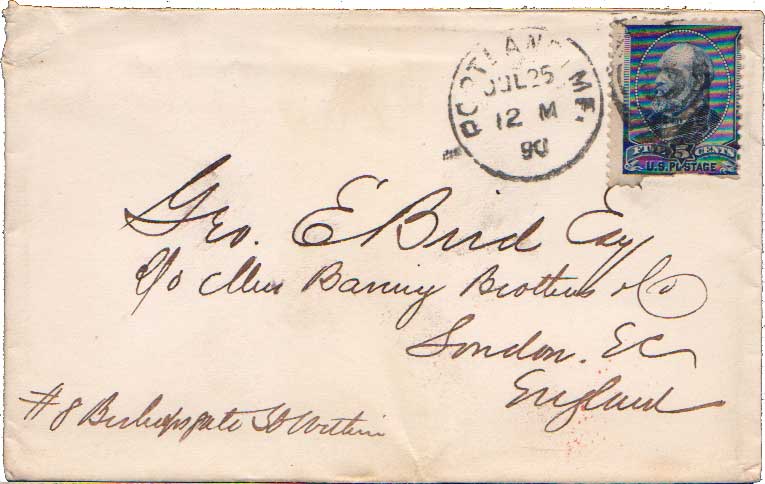 PORTLAND, ME.
JUL 25
12 M
90
FIVE 5 CENTS
U.S. POSTAGE
Geo. E Bird Esq
c/o Mess Baring Brothers & Co
London. EC
England
# 8 Bishopsgate St Within